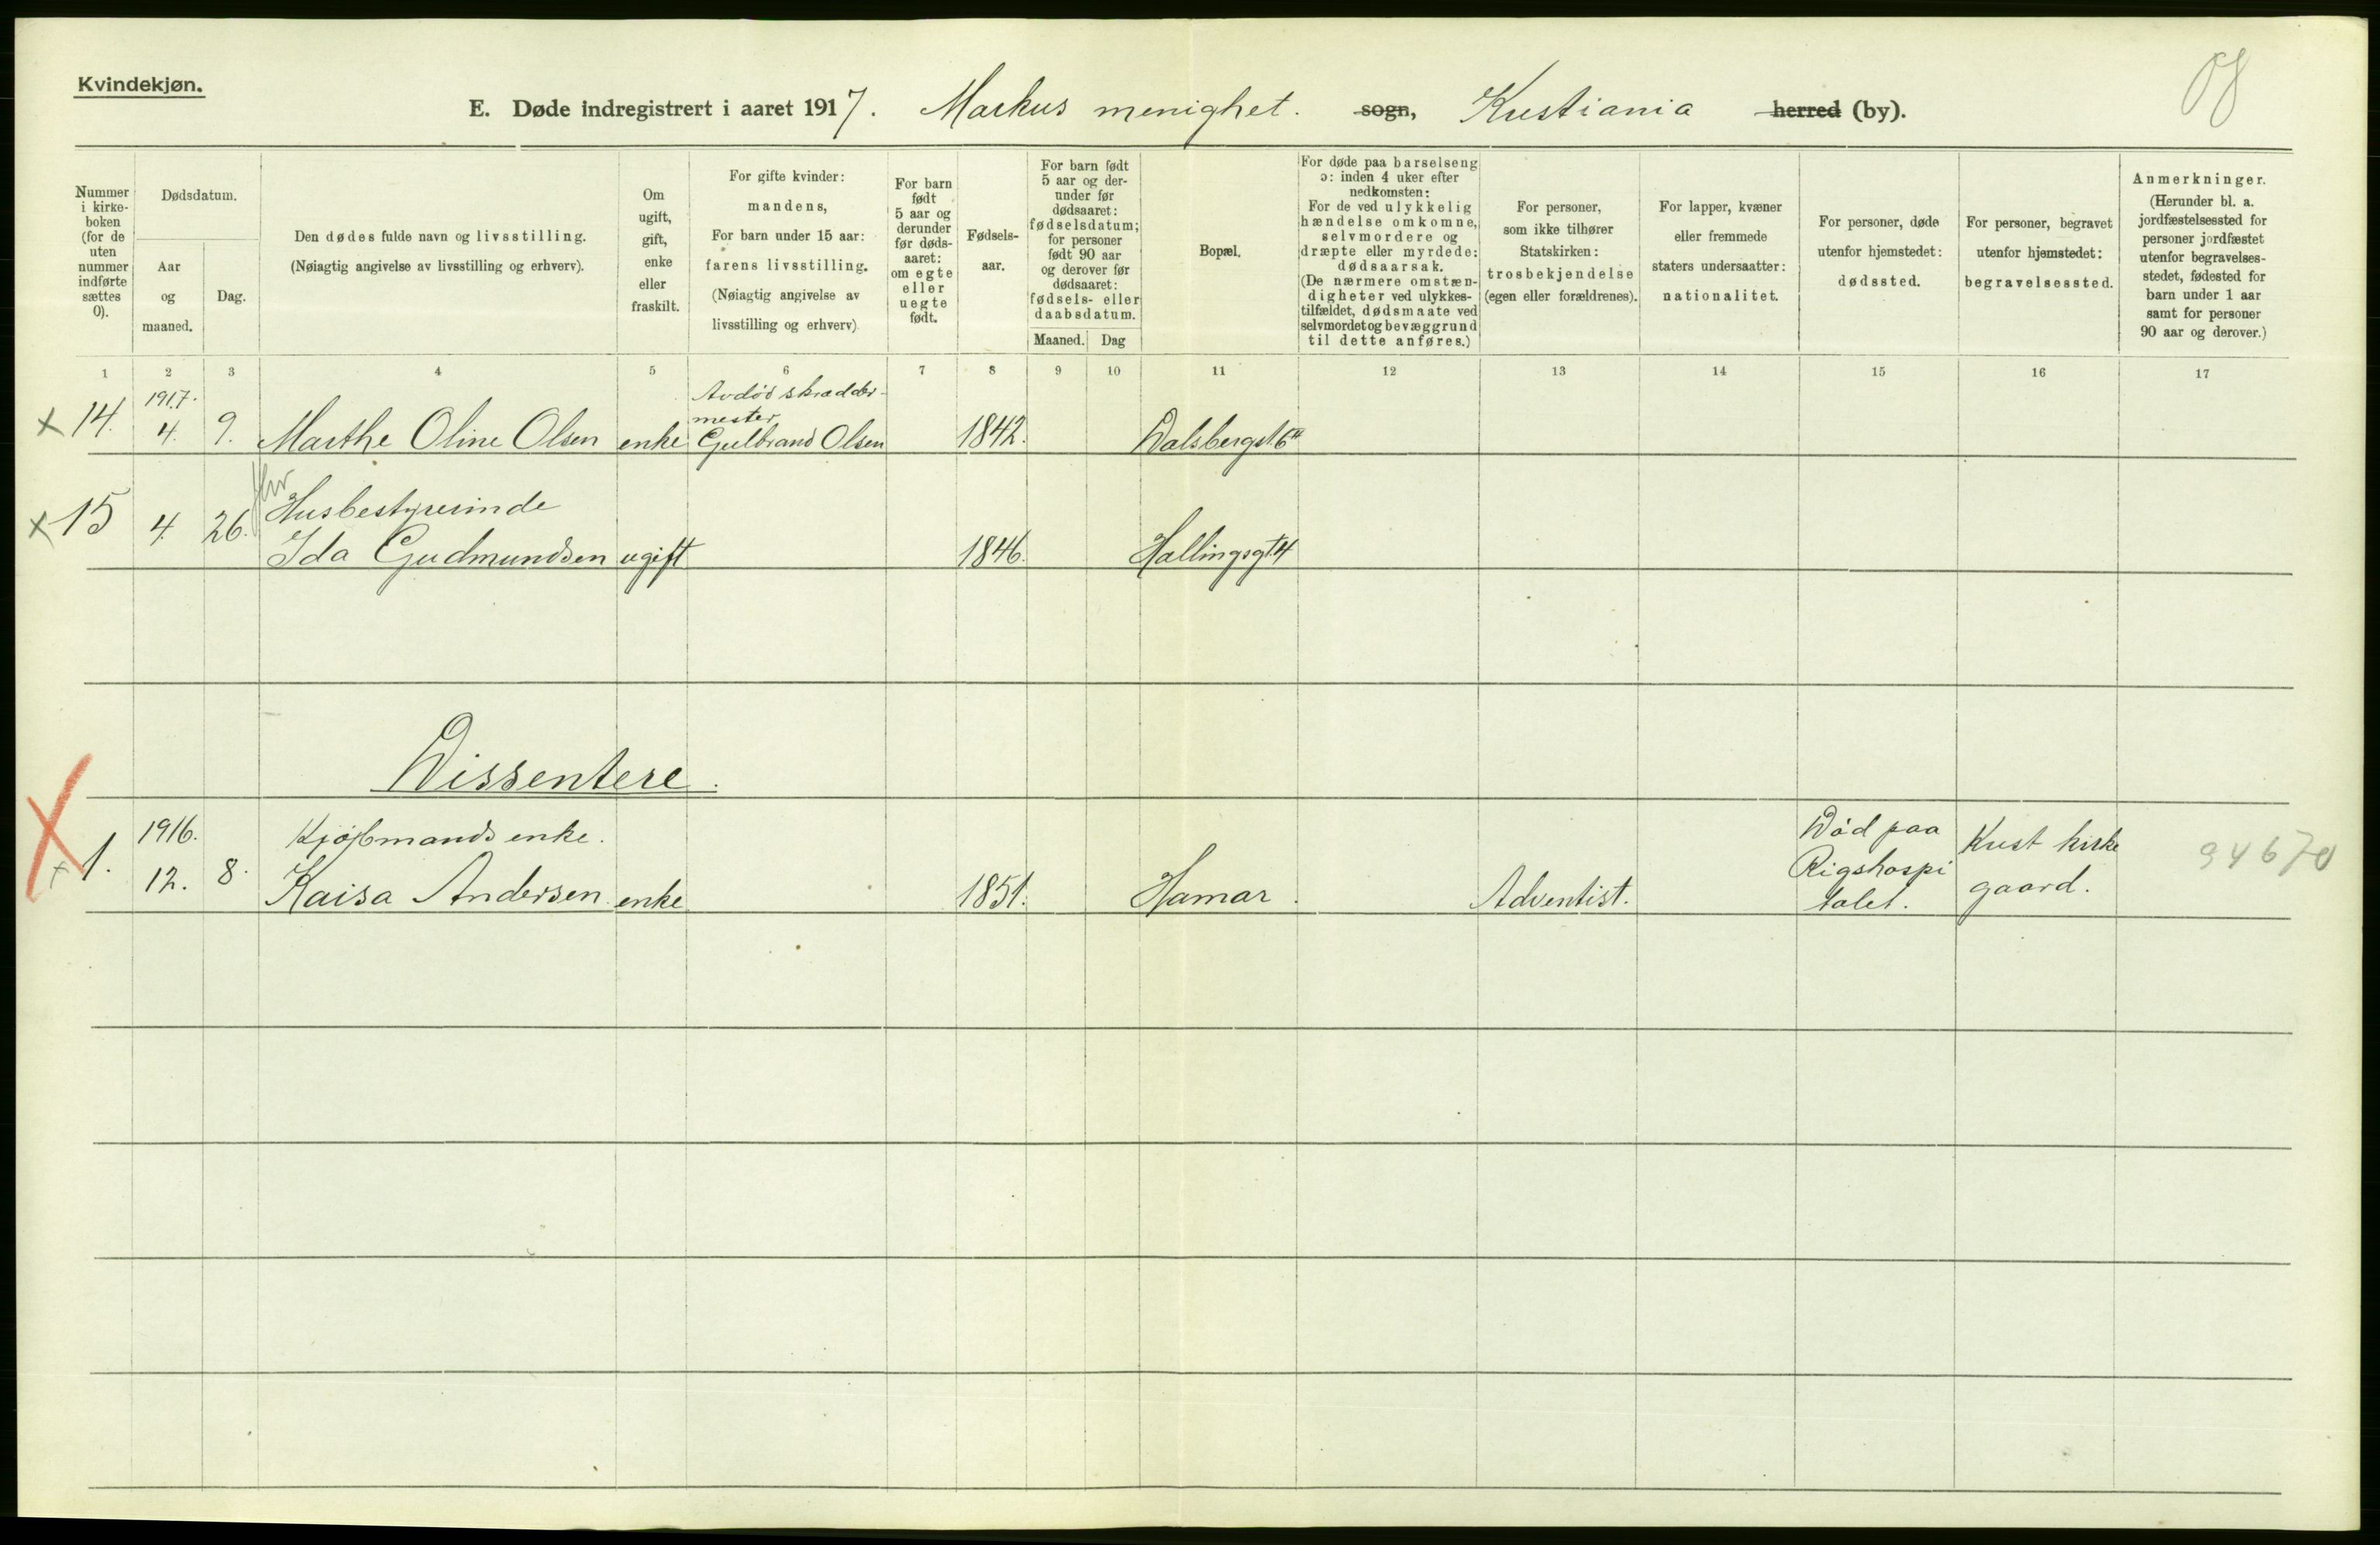 Kvindekjøn.
08
E. Døde indregistrert i aaret 1917. Markus menighet. sogn, Kristiania herred (by).
Nummer
i kirke-
boken
(for de
uten
nummer
indførte
sættes
0).
Dødsdatum.
Aar
og
maaned.
Dag.
Den dødes fulde navn og livsstilling.
(Nøiagtig angivelse av livsstilling og erhverv).
Om
ugift,
gift,
enke
eller
fraskilt.
For gifte kvinder:
mandens,
For barn under 15 aar:
farens livsstilling.
(Nøiagtig angivelse av
livsstilling og erhverv)
For barn
født
5 aar og
derunder
før døds-
aaret:
om egte
eller
uegte
født.
Fødsels-
aar.
For barn født
5 aar og der-
under før
dødsaaret:
fødselsdatum;
for personer
født 90 aar
og derover før
dødsaaret:
fødsels- eller
daabsdatum.
Maaned. Dag
Bopæl.
For døde paa barselseng
ɔ: inden 4 uker efter
nedkomsten:
For de ved ulykkelig
hændelse omkomne,
selvmordere og
dræpte eller myrdede:
dødsaarsak.
(De nærmere omstæn-
digheter ved ulykkes-
tilfældet, dødsmaate ved
selvmordet og bevæggrund
til dette anføres.)
For personer,
som ikke tilhører
Statskirken:
trosbekjendelse
(egen eller forældrenes).
For lapper, kvæner
eller fremmede
staters undersaatter:
nationalitet.
For personer, døde
utenfor hjemstedet:
dødssted.
For personer, begravet
utenfor hjemstedet:
begravelsessted.
Anmerkninger.
(Herunder bl. a.
jordfæstelsessted for
personer jordfæstet
utenfor begravelses-
stedet, fødested for
barn under 1 aar
samt for personer
90 aar og derover.)
1 2 3 4 5 6 7 8 9 10 11 12 13 14 15 16 17
1917. Avdød skrædder-
mester
x 14. 4. 9. Marthe Oline Olsen enke Gulbrand Olsen 1842. Dalsbergst. 6
Husbestyrerinde
x 15 4. 26. Ida Gudmundsen ugift 1846. Hallingsgt 4
Dissentere.
1916. Kjøbmands enke. Død paa Krist kirke
x 1. 12. 8. Kaisa Andersen enke 1851. Hamar. Adventist. Rigshospi gaard. 94670
talet.